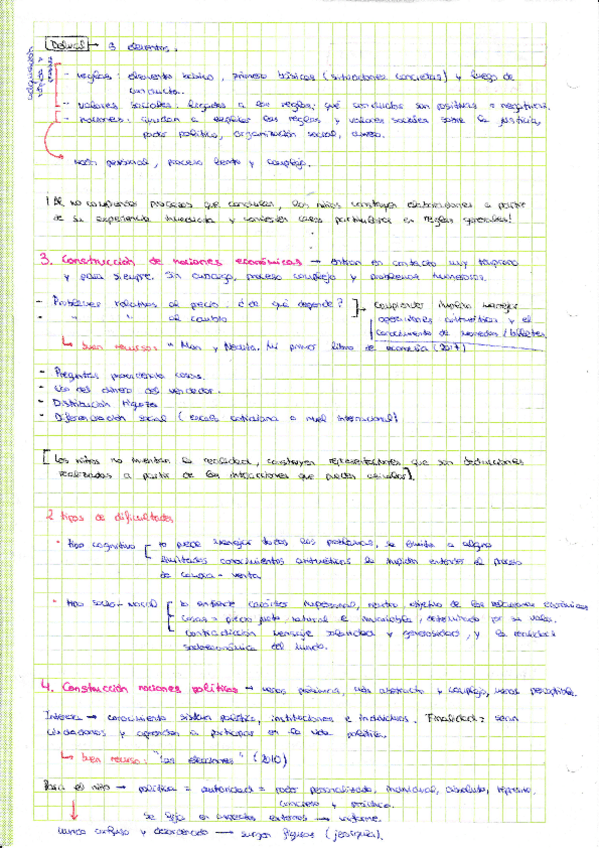 Delval → 3 elementos.
adquisición rápida y
- reglas: elemento básico, primero básicas (situaciones concretas) y luego de
conducta.
- valores sociales: ligados a las reglas; qué conductas son positivas = negativas.
- nociones: ayudan a explicar las reglas y valores sociales sobre la justicia,
poder político, organización social, dinero.
más personal, proceso lento y complejo.
no confundir procesos que concluir, los niños construyen elaboraciones a partir
de su experiencia inmediata y convierten casos particulares en reglas generales!
3. Construcción de nociones económicas → entran en contacto muy temprano
y para siempre. Sin embargo, proceso complejo y problemas numerosos.
- Problemas relativos al precio: ¿de qué depende? → Comprender implica manejar
- " " al cambio operaciones aritméticas y el
conocimiento de monedas / billetes
↳ buen recurso: " y Nicolita. Mi primer libro de economía (2017)
- Preguntas procedencia cosas.
- Uso del dinero del vendedor.
- Distribución riqueza
- Diferenciación social (escala cotidiana a nivel internacional)
[Los niños no inventan la realidad, construyen representaciones que son deducciones
realizadas a partir de las interacciones que pueden estudiar].
2 tipos de dificultades
- tipo cognitivo [ no puede manejar todos los problemas, se limita a alguno
limitados conocimientos aritméticos le impiden entender el proceso
de compra - venta.
- tipo socio-moral [ no entiende carácter impersonal, neutro, objetivo de las relaciones económicas
cosas = precio justo, natural e invariable, determinado por su valor.
contradicción mensaje solidaridad y generosidad, y la realidad
socioeconómica del mundo.
4. Construcción nociones políticas → menos próxima, más abstracto y complejo, menos perceptible.
Interesa → conocimiento sistema política, instituciones e individuos. Finalidad: sean
ciudadanos y aprendan a participar en la vida política.
↳ buen recurso: "las elecciones" (2010)
Para el niño → política = autoridad = poder personalizado, individual, absoluto, represivo,
concreto y
se fija en aspectos externos → uniforme.
mundo confuso y desordenado → surgen figuras (jerarquía).